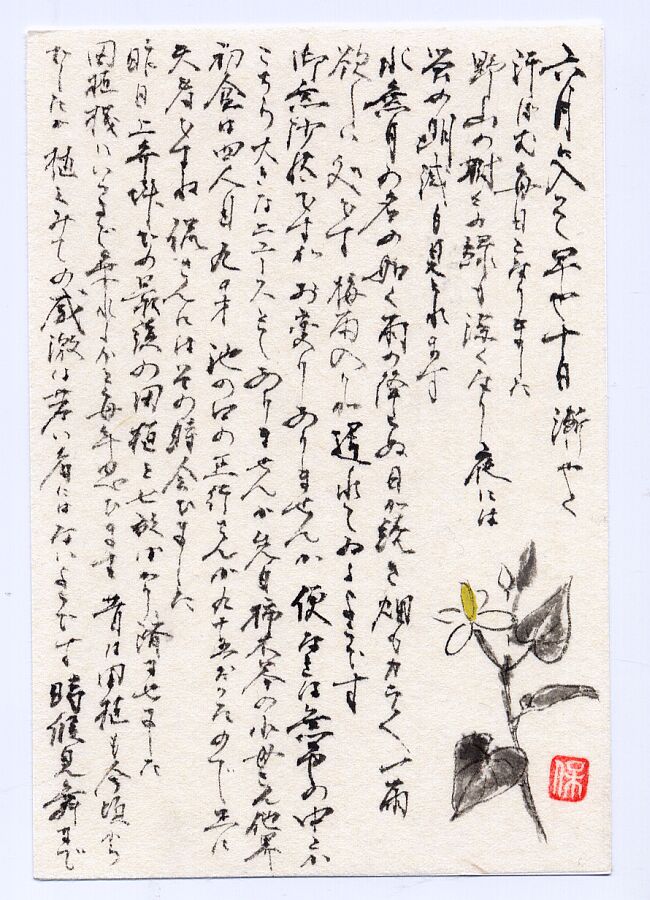 六月に入って早や十日 漸やく
汗ばむ毎日となりました
野山の樹々の緑も深くなり夜には
蛍の明滅も見られます
水無月の名の如く雨の降らぬ日が続き畑もカラカラ 一雨
欲しい処です 梅雨入りが遅れているようです
御無沙汰ですがお変りありませんか 便なきは無事の中とか
こちら大きなニュースとてありませんが先日柿木谷の小母さん他界
初倉は四人目 九十才 池の口の正行さんが九十五だったので共に
天寿ですね さんにはその時会いました
昨日上 の最後の田植と七 かり済ませました
田植機にいつまで乗れるかと毎年思います 昔は田植も今頃から
でしたが 植えみての感激は若い者にはないようです 時候見舞まで
保